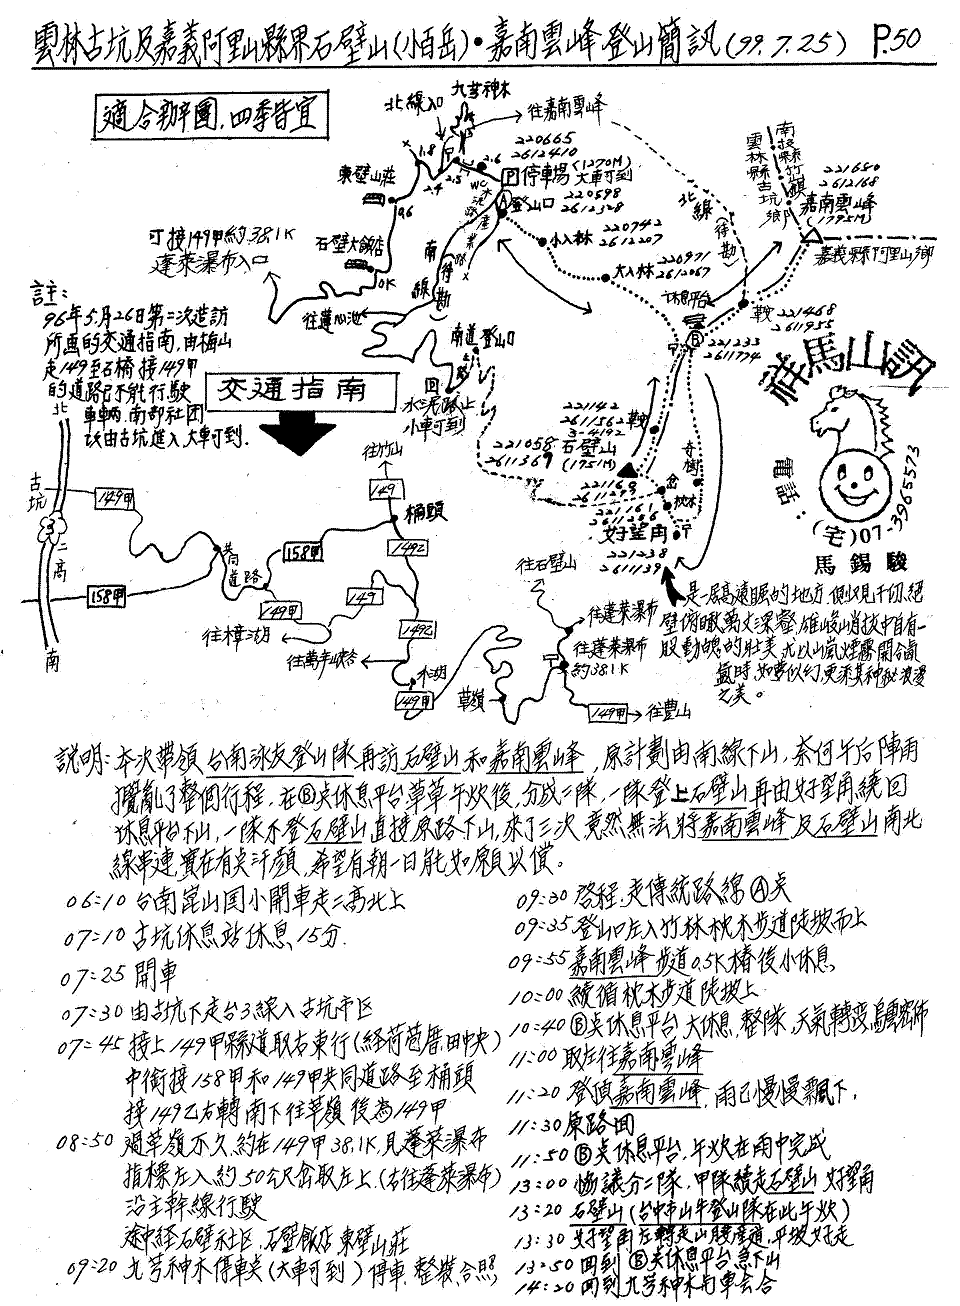 雲林古坑及嘉義阿里山縣界石壁山(小百岳)·嘉南雲峰登山簡訊(99.7.25) P.50
適合辦團,四季皆宜
九芎神木
北線入口
往嘉南雲峰
東壁山莊
1.8
2.4
2.5
2.6
220665
2612410
P 停車場(1270M)
大車可到
Ⓐ登山口
220598
2612328
WC
0.6
石壁大飯店
0K
可接149甲約38.1K
蓬萊瀑布入口
南線(待勘)
往蓮心池
小入林
220742
2612207
大入林
220971
2612067
北線(待勘)
南投縣竹山鎮
雲林縣古坑鄉
221680
2612168
嘉南雲峰
(1795M)
嘉義縣阿里山鄉
休息平台
鞍
221468
2611955
Ⓑ
221233
2611774
註:
96年5月26日第二次造訪
所画的交通指南,由梅山
走149至石橋接149甲
的道路已不能行駛
車輛,南部社團
改由古坑進入,大車可到.
交通指南
南道登山口
回
水泥路上
小車可到
221142
2611562 鞍
221058
2611369
3-4192
石壁山
(1751M)
221168
2611299
岔
奇樹
枕木
221161
2611286
好望角
221238
2611139
祥馬山訊
電話:
(宅)07-3965573
馬錫駿
北
古坑
149甲
3
二高
158甲
南
共同道路
158甲
149甲
往樟湖
149
往竹山
149
桶頭
149乙
149乙
往萬年峽谷
木瓜潭
149甲
草嶺
往石壁山
往蓬萊瀑布
往蓬萊瀑布
約38.1K
149甲
往豐山
是一居高遠眺的地方,側見千仞絕
壁俯瞰萬丈深壑,雄峻峭拔中自有一
股動魄的壯美,尤以山嵐煙霧開合氤
氳時,如夢似幻,更添其神秘浪漫
之美。
說明:本次帶領台南泳友登山隊再訪石壁山和嘉南雲峰,原計劃由南線下山,奈何午后陣雨
攪亂了整個行程,在Ⓑ点休息平台草草午炊後,分成二隊,一隊登上石壁山再由好望角繞回
休息平台下山,一隊不登石壁山直接原路下山,來了三次竟然無法將嘉南雲峰及石壁山南北
線串連,實在有点汗顏,希望有朝一日能如願以償。
06:10 台南崑山国小開車走二高北上
07:10 古坑休息站休息15分.
07:25 開車
07:30 由古坑下走台3線入古坑市区
07:45 接上149甲縣道取右東行(経荷苞厝.田中央)
中銜接158甲和149甲共同道路至桶頭
接149乙右轉南下往草嶺後為149甲
08:50 過草嶺不久,約在149甲38.1K見蓬萊瀑布
指標左入約50公尺岔取左上(右往蓬萊瀑布)
沿主幹線行駛
途中経石壁社区.石壁飯店.東壁山莊
09:20 九芎神木停車場(大車可到)停車.整裝.合照
09:30 啓程.走傳統路線Ⓐ点
09:35 登山口左入竹林枕木步道陡坡而上
09:55 嘉南雲峰步道0.5K樁後小休息
10:00 續循枕木步道陡坡上
10:40 Ⓑ点休息平台.大休息,整隊,天氣轉変,烏雲密佈
11:00 取左往嘉南雲峰
11:20 登頂嘉南雲峰,雨已慢慢飄下.
11:30 原路回
11:50 Ⓑ点休息平台.午炊在雨中完成
13:00 協議分二隊,甲隊續走石壁山 好望角
13:20 石壁山(台中市山牛登山隊在此午炊)
13:30 好望角左轉走山腰産道,平坡好走
13:50 回到Ⓑ点休息平台急下山
14:20 回到九芎神木与車会合